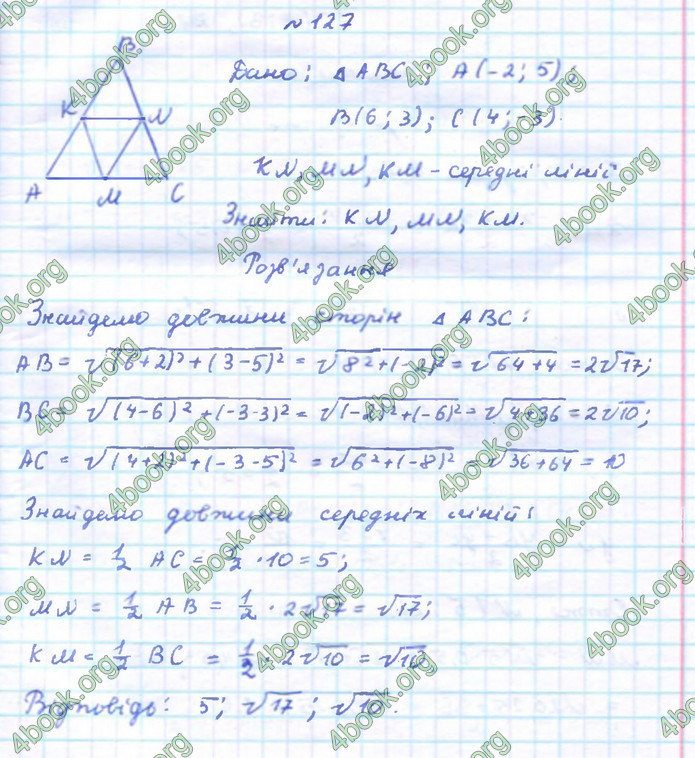 №127
B
K N
A M C
Дано: △ABC; A(-2; 5);
B(6; 3); C(4; -3).
KN, MN, KM - середні лінії
Знайти: KN, MN, KM.
Розв'язання
Знайдемо довжини сторін △ABC:
AB = √((6+2)²+(3-5)²) = √(8²+(-2)²) = √(64+4) = 2√17;
BC = √((4-6)²+(-3-3)²) = √((-2)²+(-6)²) = √(4+36) = 2√10;
AC = √((4+2)²+(-3-5)²) = √(6²+(-8)²) = √(36+64) = 10
Знайдемо довжини середніх ліній:
KN = 1/2 AC = 1/2 · 10 = 5;
MN = 1/2 AB = 1/2 · 2√17 = √17;
KM = 1/2 BC = 1/2 · 2√10 = √10
Відповідь: 5; √17; √10.
4book.org